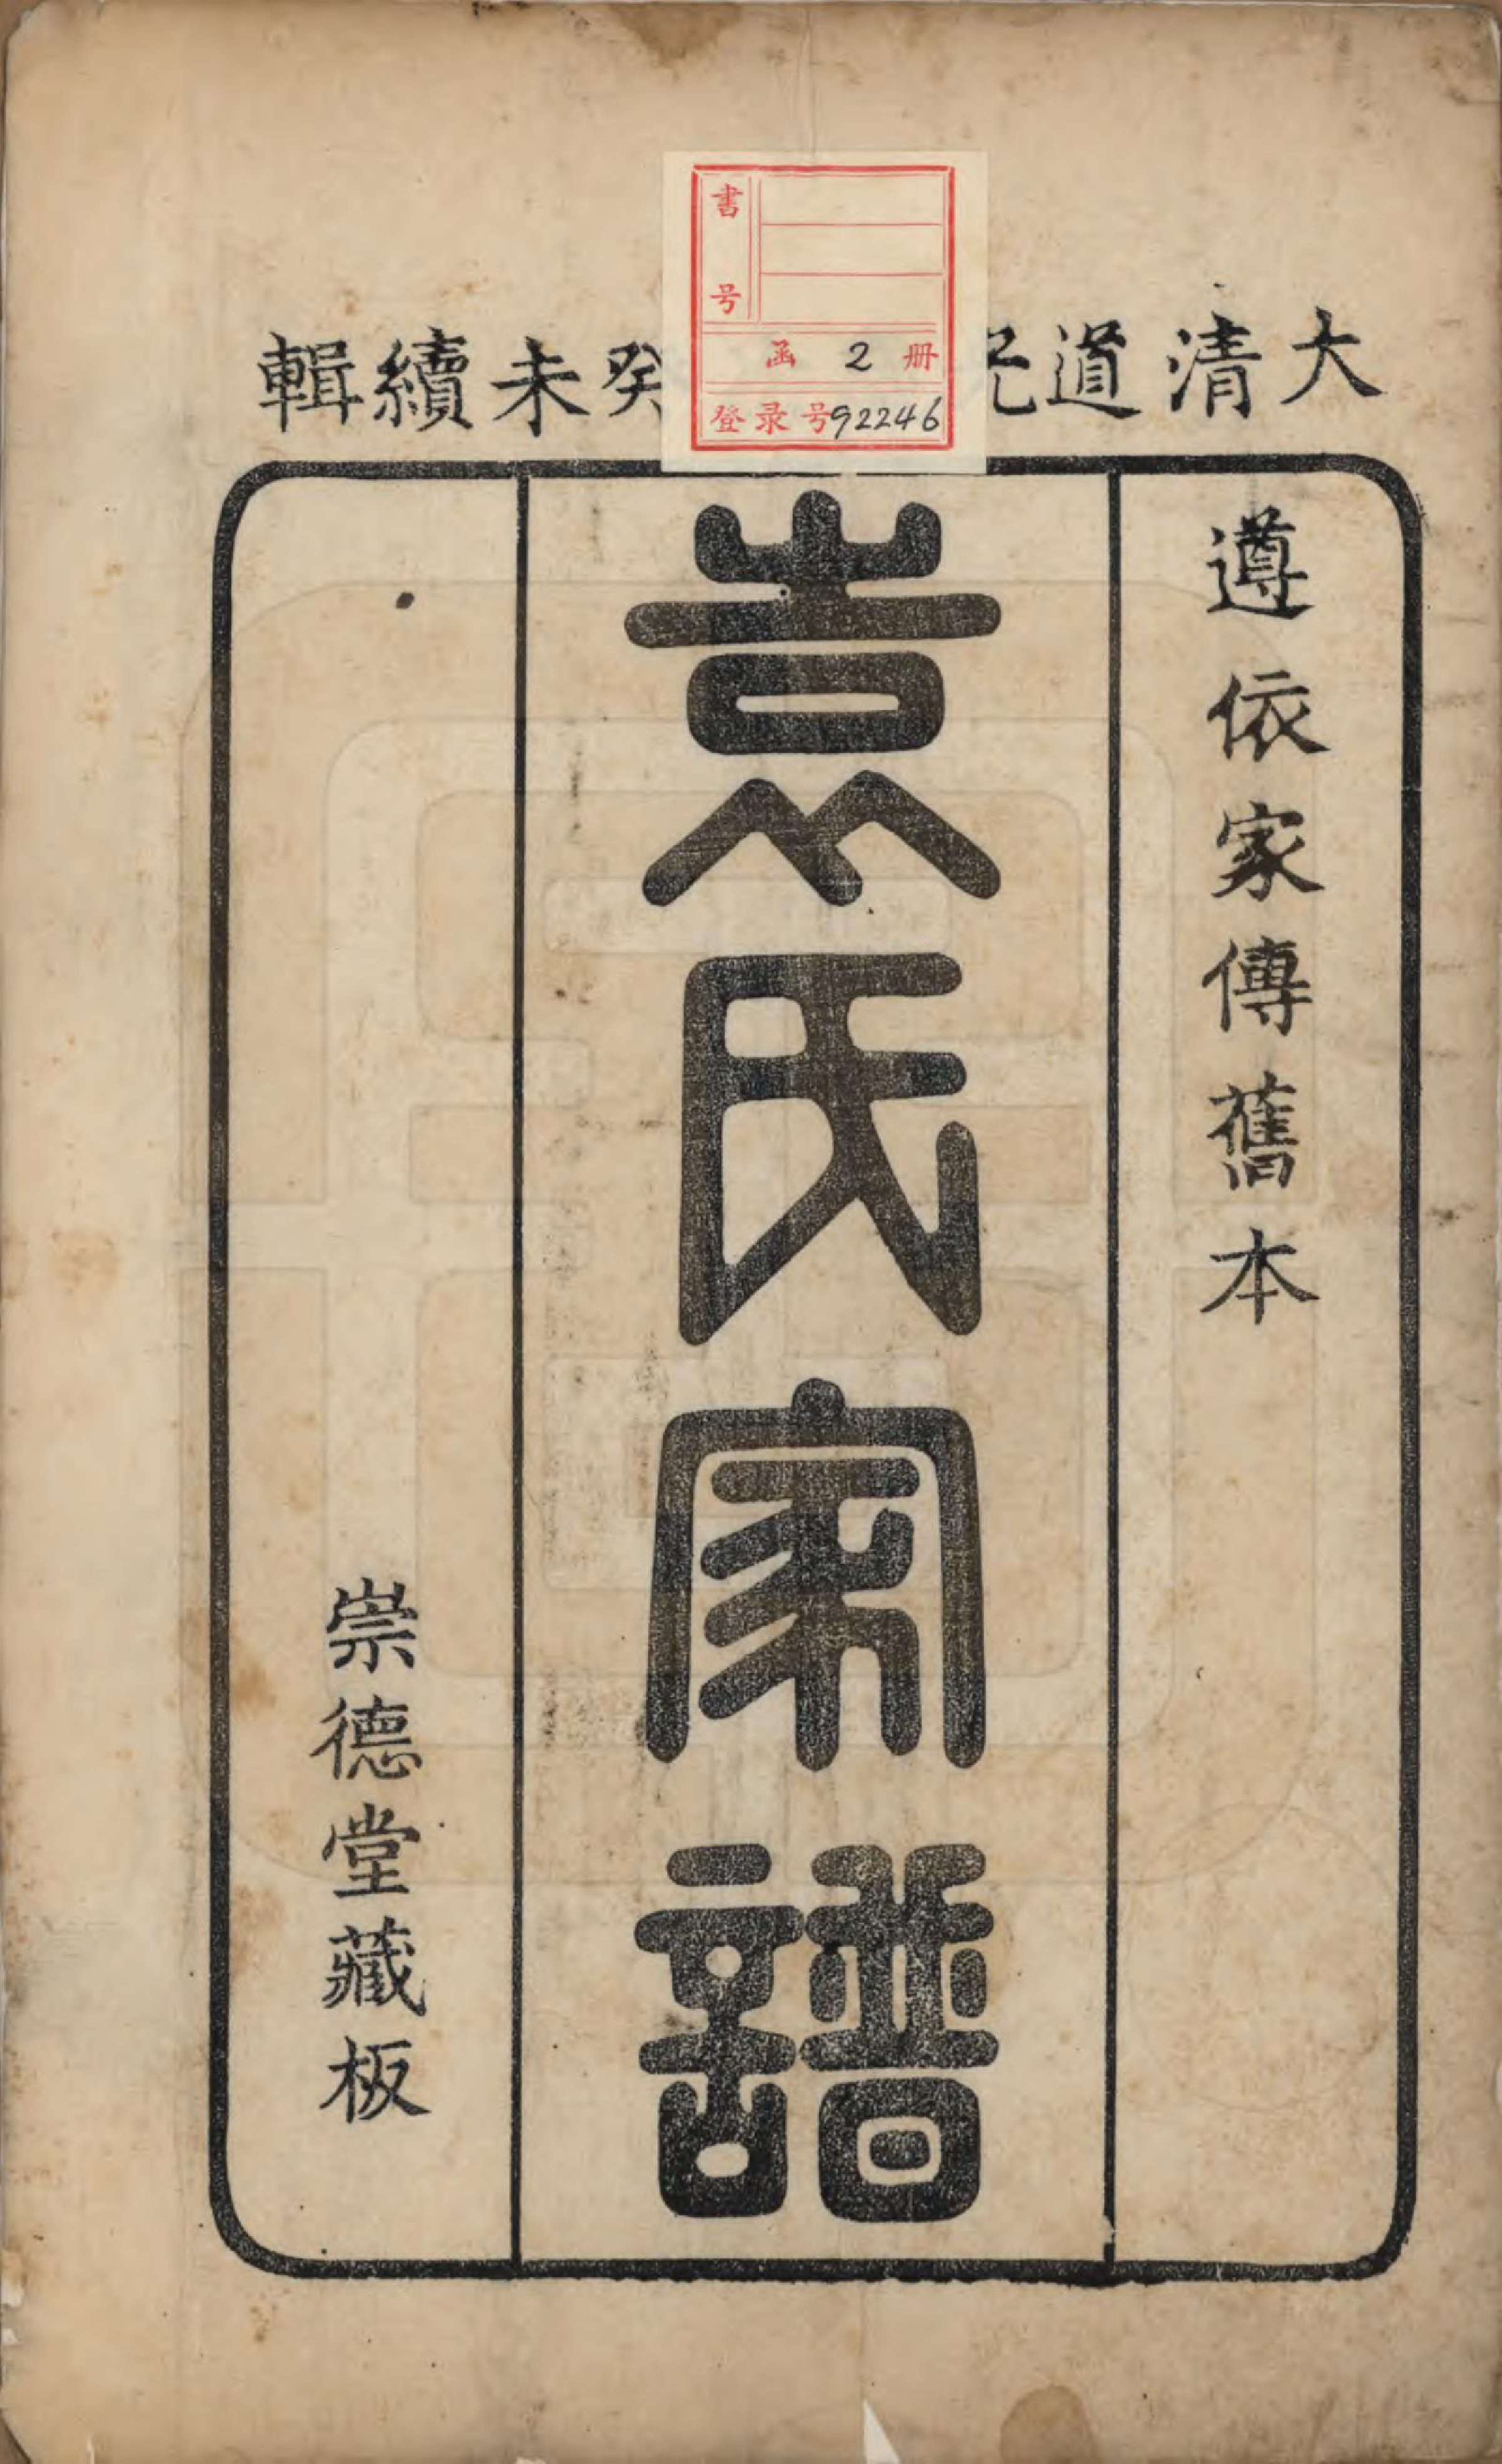 大清道光癸未續輯
遵依家傳舊本
袁氏家譜
崇德堂藏板
書号
函 2 册
登录号92246